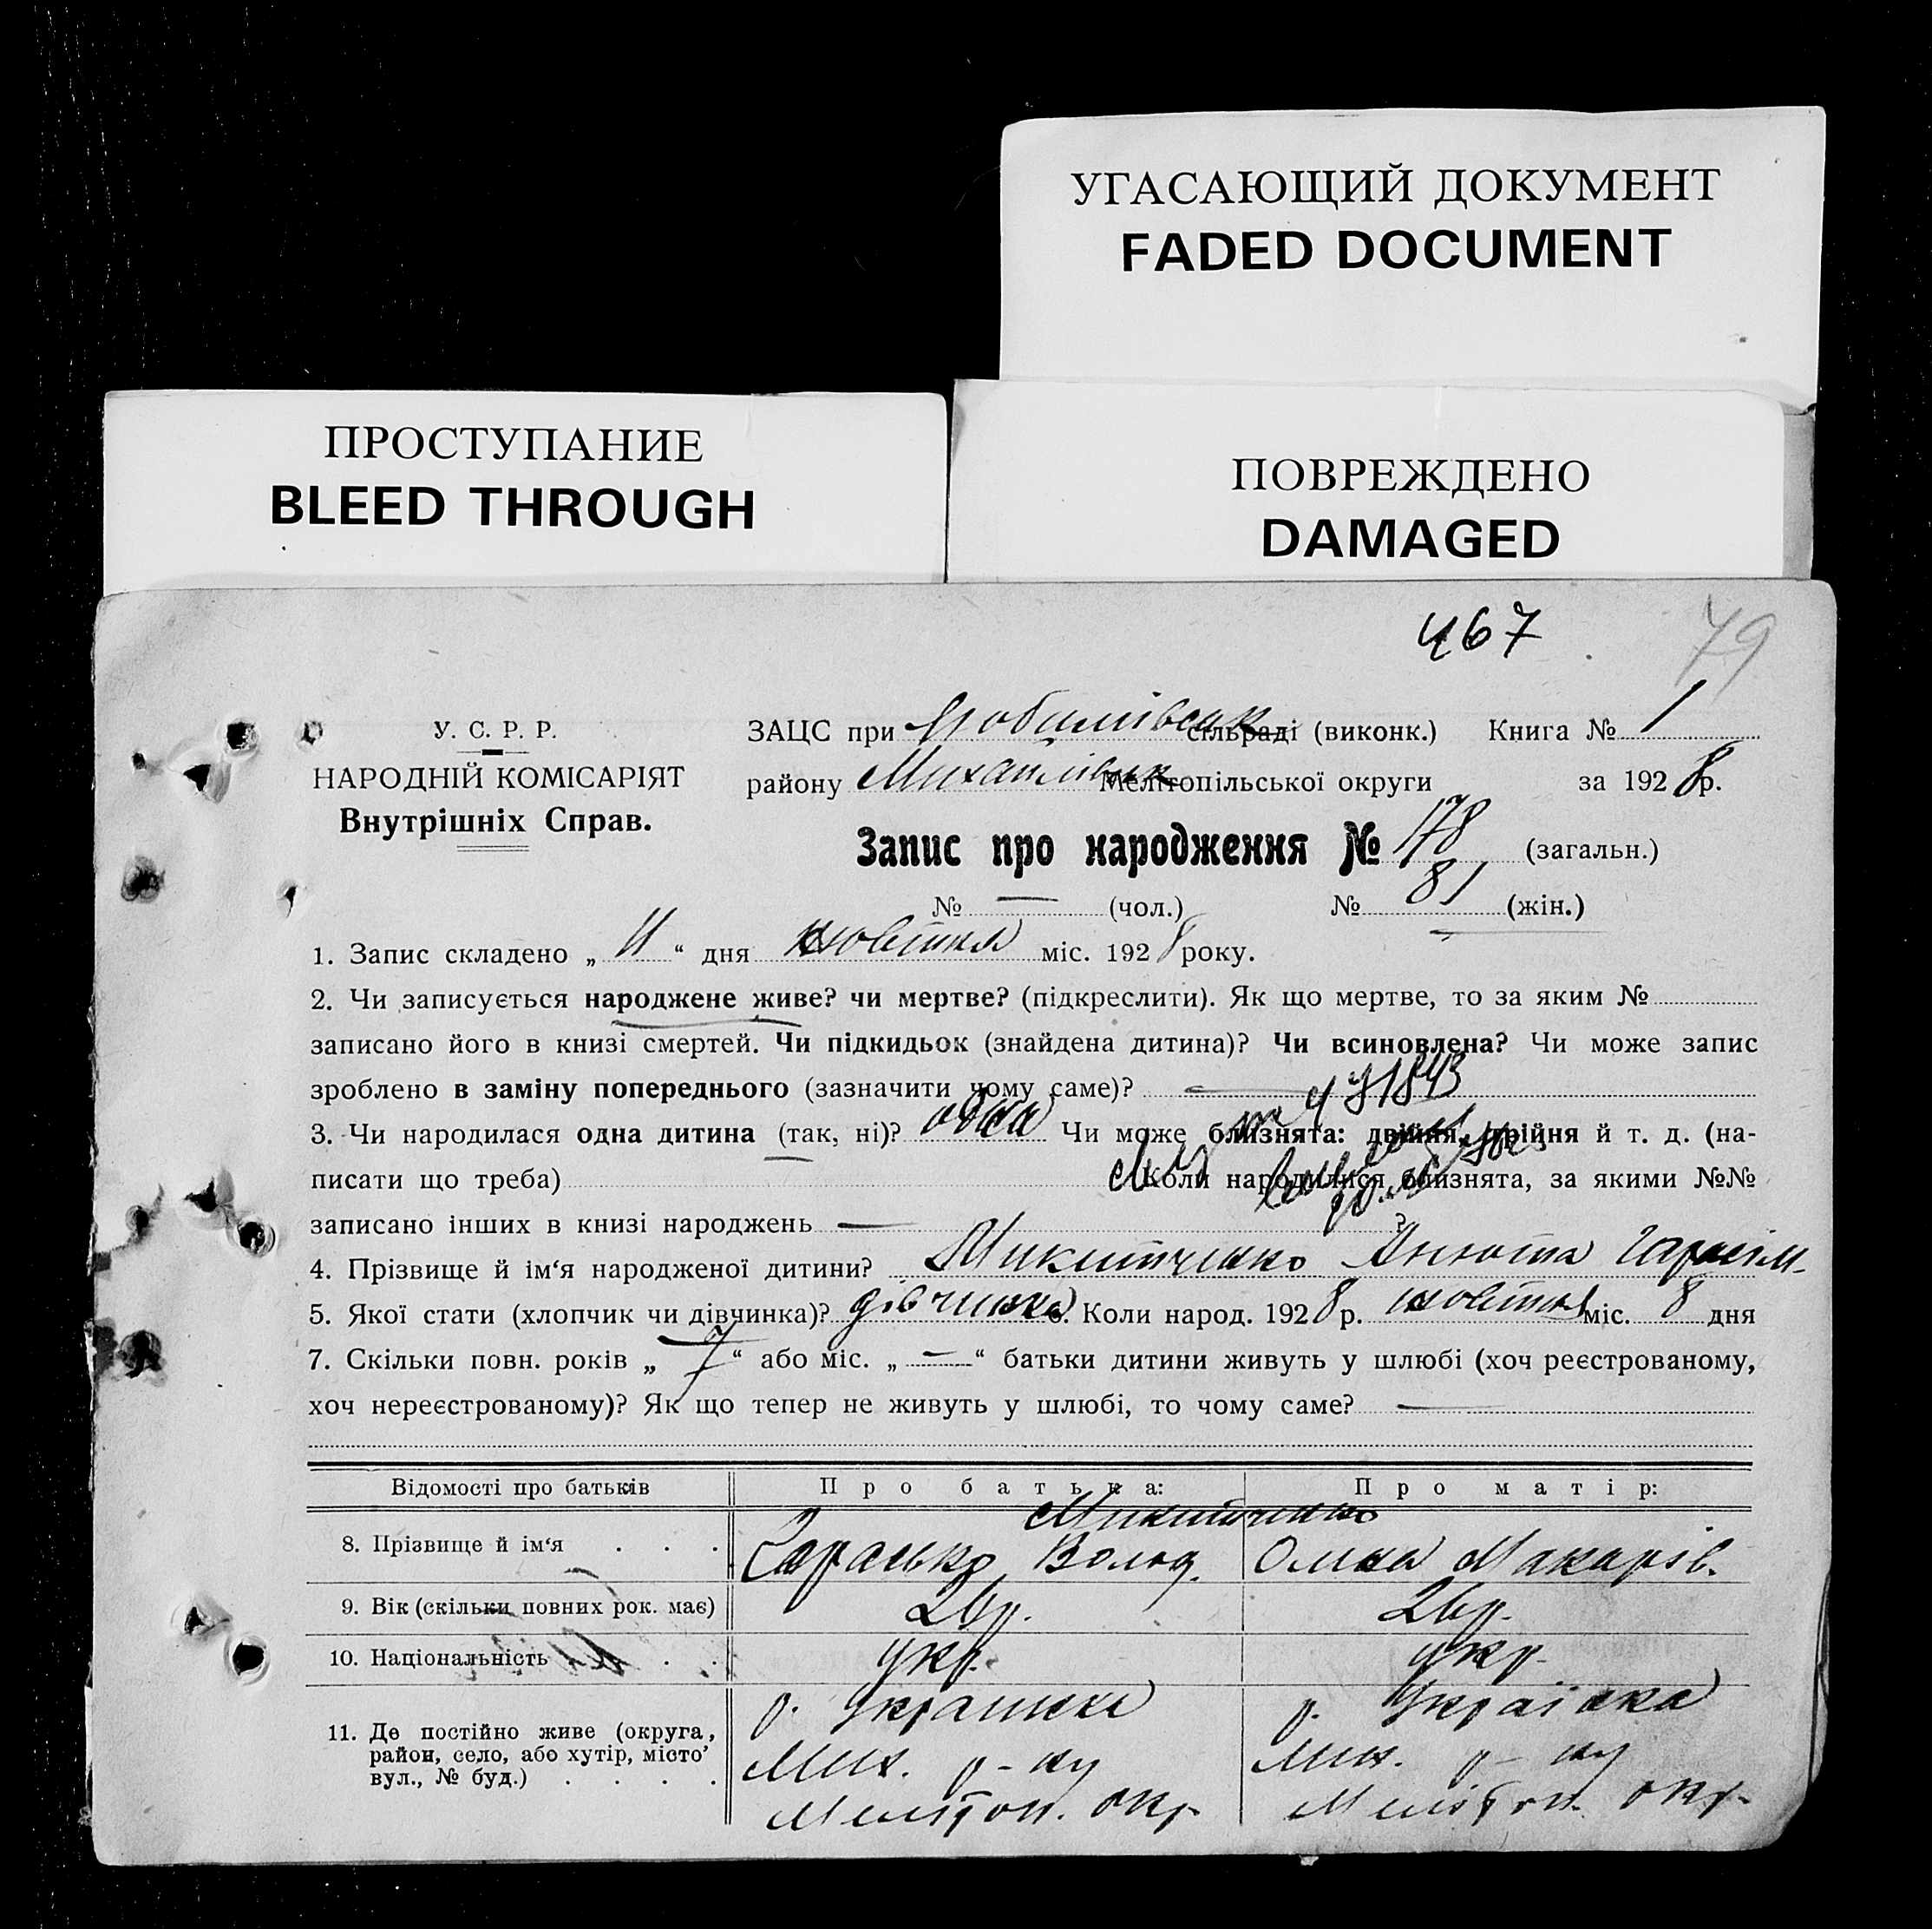 УГАСАЮЩИЙ ДОКУМЕНТ
FADED DOCUMENT
ПРОСТУПАНИЕ
BLEED THROUGH
ПОВРЕЖДЕНО
DAMAGED
467
79
У. С. Р. Р.
НАРОДНІЙ КОМІСАРІЯТ
Внутрішніх Справ.
ЗАЦС при сільраді (виконк.) Книга № 1
району Михайлівськ Мелітопільської округи за 1928 р.
Запис про народження № 178 (загальн.)
№ — (чол.) № 81 (жін.)
1. Запис складено „ 11 “ дня жовтня міс. 1928 року.
2. Чи записується народжене живе? чи мертве? (підкреслити). Як що мертве, то за яким №
записано його в книзі смертей. Чи підкидьок (знайдена дитина)? Чи всиновлена? Чи може запис
зроблено в заміну попереднього (зазначити чому саме)? —
3. Чи народилася одна дитина (так, ні)? одна Чи може близнята: двійня, трійня й т. д. (на-
писати що треба) Коли народилися близнята, за якими №№
записано інших в книзі народжень — ?
4. Прізвище й ім‘я народженої дитини? Микитченко Анюта Гарасім.
5. Якої стати (хлопчик чи дівчинка)? дівчинка 6. Коли народ. 1928 р. жовтня міс. 8 дня
7. Скільки повн. років „ 7 “ або міс. „ — “ батьки дитини живуть у шлюбі (хоч реєстрованому,
хоч нереєстрованому)? Як що тепер не живуть у шлюбі, то чому саме? —
Відомості про батьків Про батька: Про матір:
Микитченко
8. Прізвище й ім‘я . . . Гарасько Волод. Олена Макарів.
9. Вік (скільки повних рок. має) 26 р. 26 р.
10. Національність . . . . укр. укр.
11. Де постійно живе (округа, район, село, або хутір, місто, вул., № буд.) . . . .
р. Українка р. Українка
Мих. р-ну Мих. р-ну
Мелітоп. окр. Мелітоп. окр.